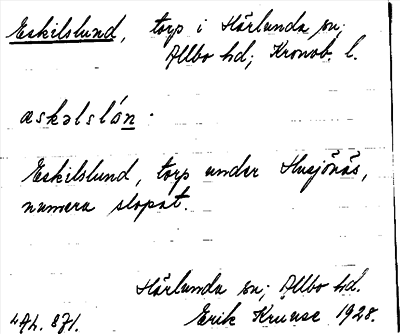 Eskilslund, torp i Härlunda sn;
Allbo hd; Kronob. l.
æskəlslón.
Eskilslund, torp under Husjönäs,
numera slopat.
Härlunda sn; Allbo hd.
Erik Kruuse 1928.